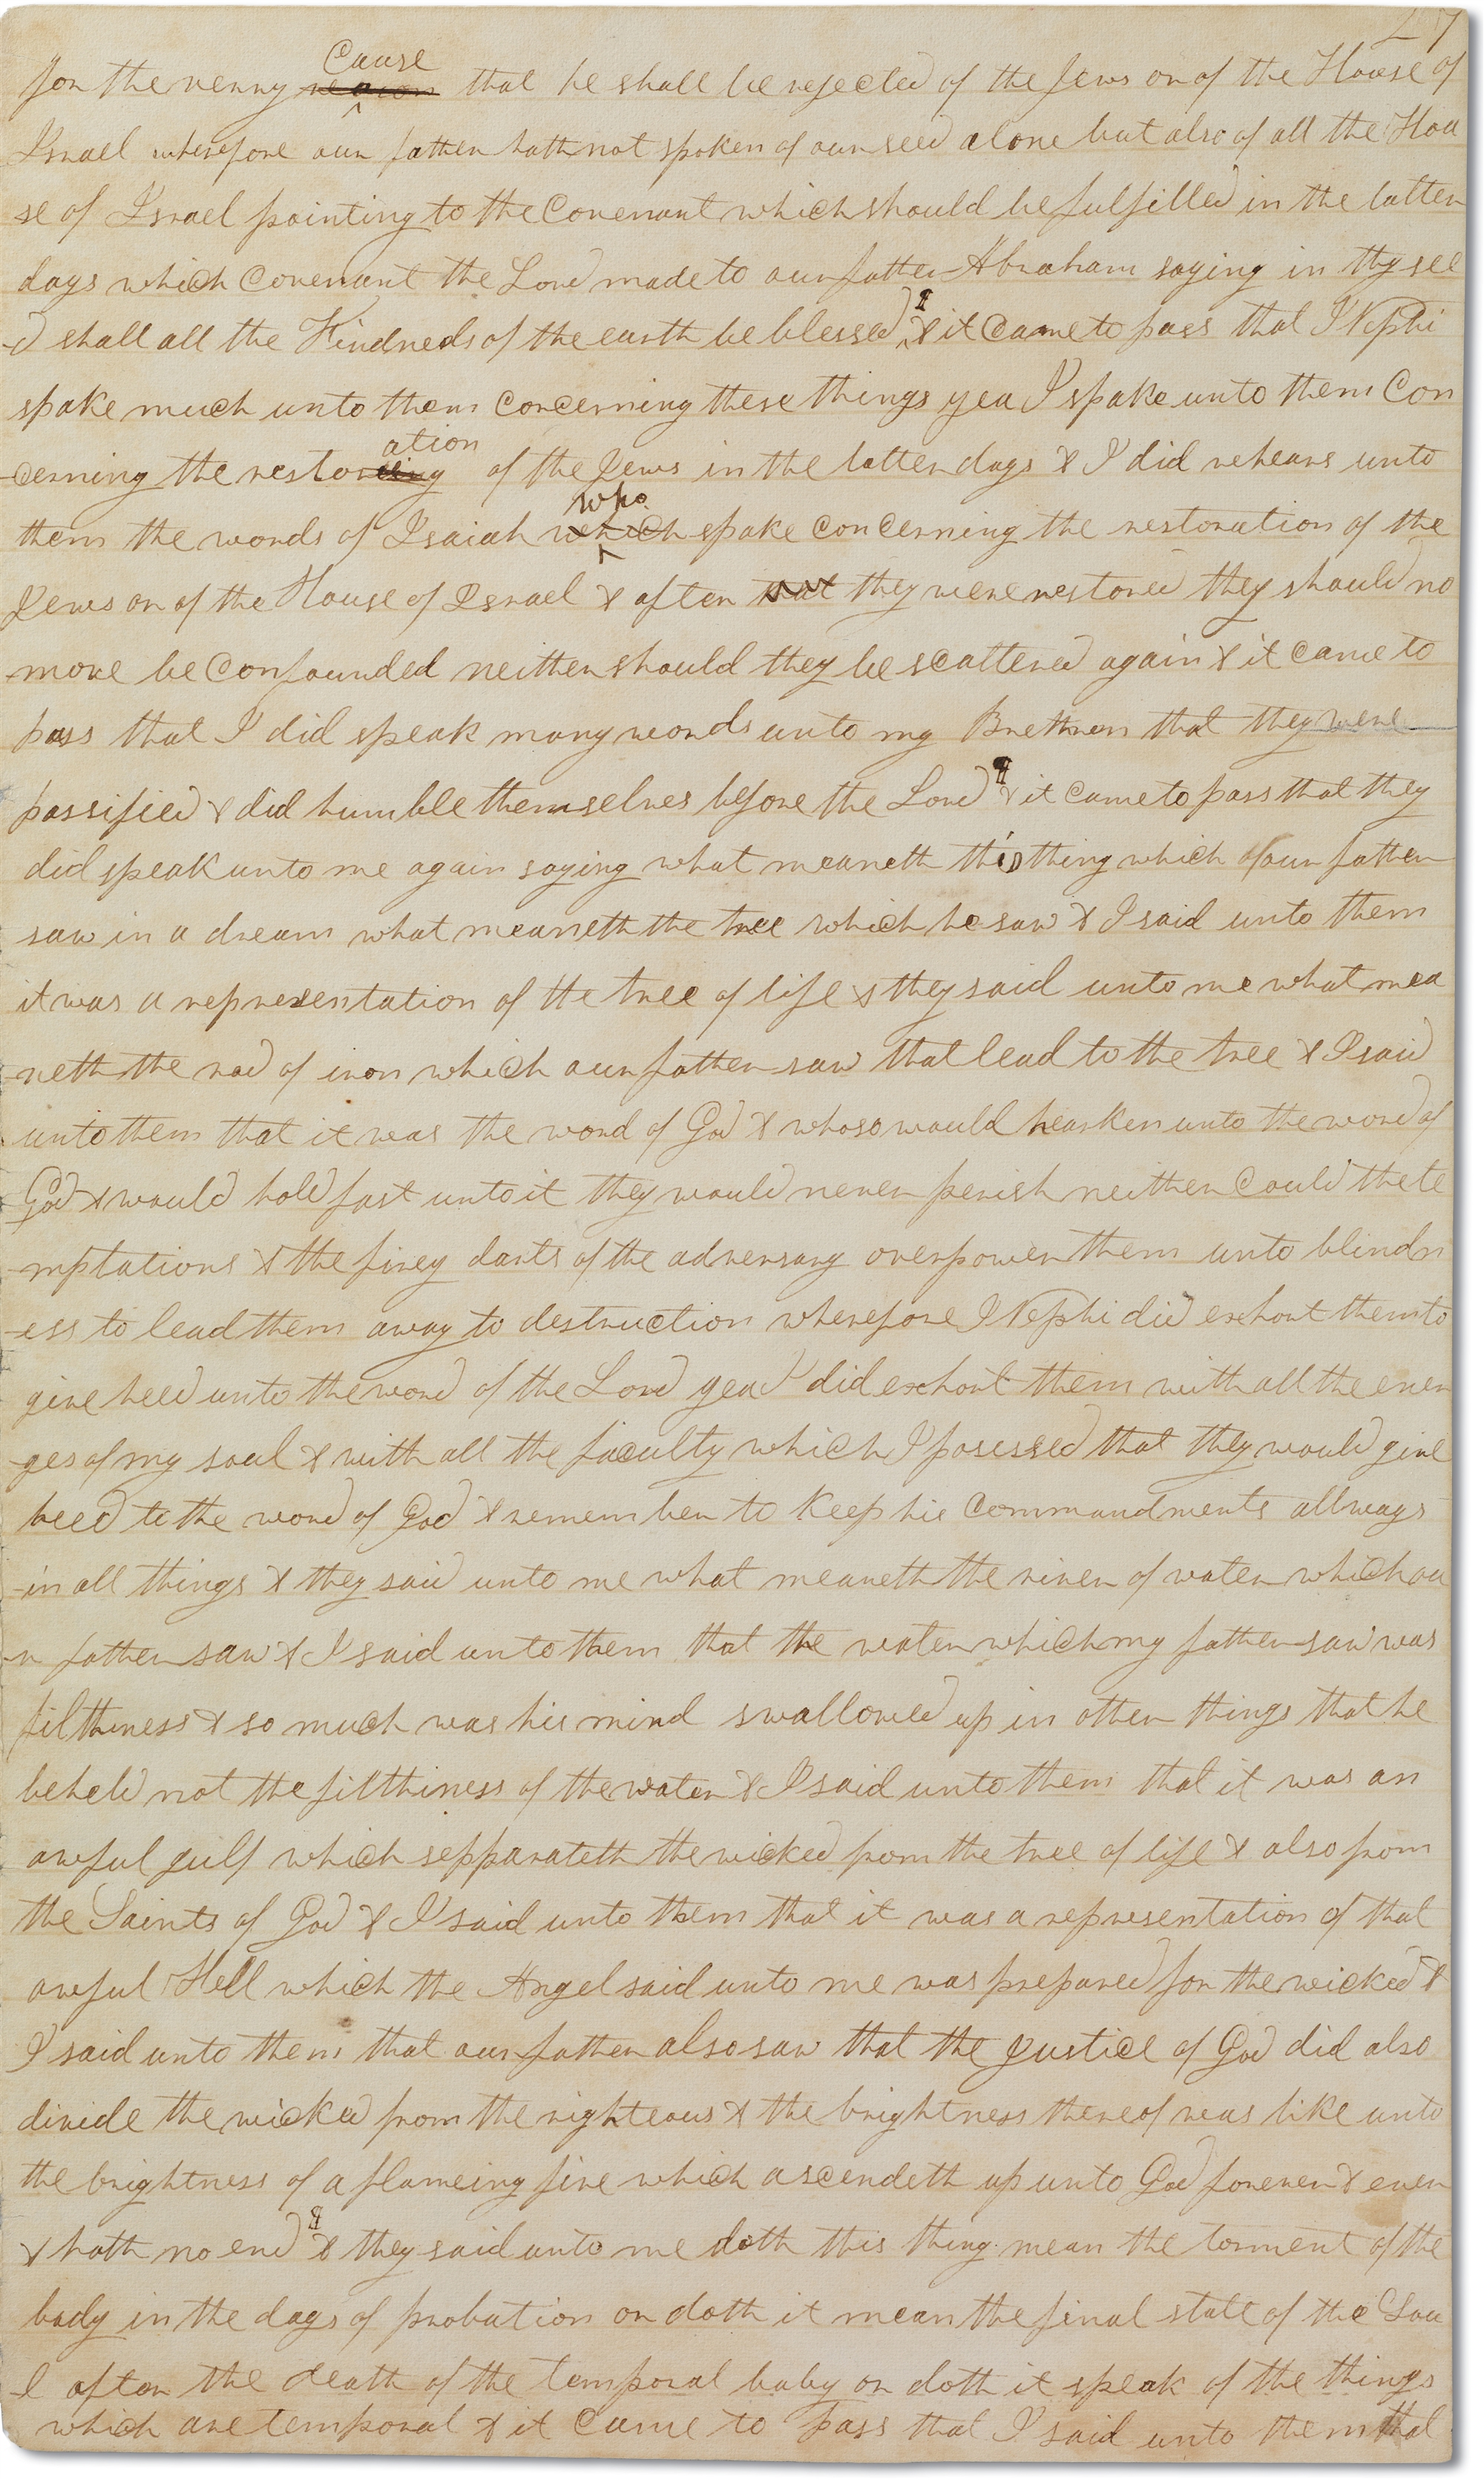 27
for the verry <del>reason</del> Cause that he shall be rejected of the Jews or of the House of
Israel wherefore our father hath not spoken of our seed alone but also of all the Hou
se of Israel pointing to the Covenant which should be fulfilled in the latter
days which Covenant the Lord made to our father Abraham saying in thy see
-d shall all the Kindreds of the earth be blessed ¶ & it Came to pass that I Nephi
spake much unto them Concerning these things yea I spake unto them Con
-cerning the restor<del>eing</del>ation of the Jews in the latter days & I did rehears unto
them the words of Isaiah <del>which</del> who spake Concerning the restoration of the
Jews or of the House of Israel & after <del>that</del> they were restored they should no
-more be Confounded neither should they be scattered again & it Came to
pass that I did speak many words unto my Brethren that they were
passified & did humble themselves before the Lord ¶ & it Came to pass that they
did speak unto me again saying what meaneth this thing which our father
saw in a dream what meaneth the tree which he saw & I said unto them
it was a representation of the tree of life & they said unto me what mea
-neth the rod of iron which our father saw that lead to the tree & I said
unto them that it was the word of God & whoso would hearken unto the word of
God & would hold fast unto it they would never perish neither Could the te
-mptations & the firey darts of the adversary overpower them unto blindn
-ess to lead them away to destruction wherefore I Nephi did exhort them to
give heed unto the word of the Lord yea I did exhort them with all the ener
-ges of my soul & with all the faculty which I posessed that they would give
heed to the word of God & remember to Keep his Commandments allways
-in all things & they said unto me what meaneth the river of water which ou
-r father saw & I said unto them that the water which my father saw was
filthiness & so much was his mind swallowed up in other things that he
beheld not the filthiness of the water & I said unto them that it was an
awful gulf which sepparateth the wicked from the tree of life & also from
the Saints of God & I said unto them that it was a representation of that
awful Hell which the Angel said unto me was prepared for the wicked &
I said unto them that our father also saw that the Justice of God did also
divide the wicked from the righteous & the brightness thereof was like unto
the brightness of a flameing fire which ascendeth up unto God forever & ever
& hath no end ¶ & they said unto me doth this thing mean the torment of the
body in the days of probation or doth it mean the final state of the Sou
-l after the death of the temporal baby or doth it speak of the things
which are temporal & it Came to pass that I said unto them that